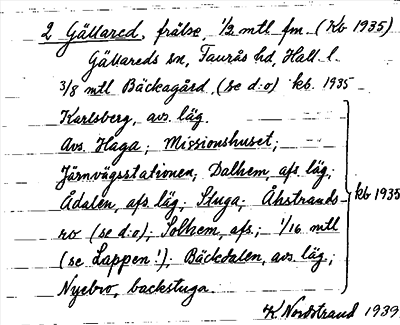 2 Gällared, frälse, 1/2 mtl fm. (Kb 1935)
Gällareds sn, Faurås hd, Hall. l.
3/8 mtl Bäckagård, (se d:o) kb. 1935
Karlsberg, avs. läg.
Avs. Haga; Missionshuset;
Järnvägsstationen; Dalhem, afs. läg.;
Ådalen, afs. läg; Stuga; Åhstrands-
ro (se d:o); Solhem, afs.; 1/16 mtl
(se Lappen!); Bäckdalen, avs. läg.;
Nyebro, backstuga.
kb 1935
K. Nordstrand 1939